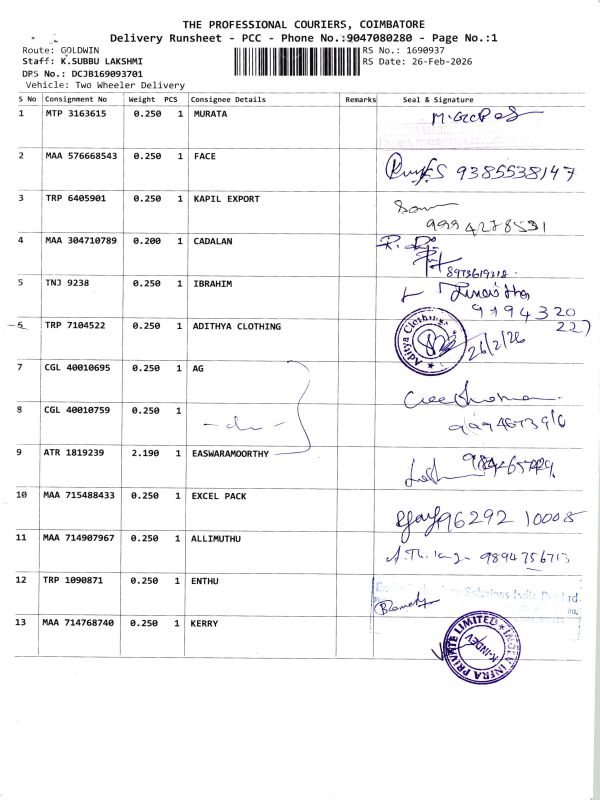 THE PROFESSIONAL COURIERS, COIMBATORE
Delivery Runsheet - PCC - Phone No.:9047080280 - Page No.:1
Route: GOLDWIN
RS No.: 1690937
Staff: K.SUBBU LAKSHMI
RS Date: 26-Feb-2026
DPS No.: DCJB169093701
Vehicle: Two Wheeler Delivery
S No Consignment No Weight PCS Consignee Details Remarks Seal & Signature
1 MTP 3163615 0.250 1 MURATA
2 MAA 576668543 0.250 1 FACE 9385538147
3 TRP 6405901 0.250 1 KAPIL EXPORT
9994278531
4 MAA 304710789 0.200 1 CADALAN
8973619318
5 TNJ 9238 0.250 1 IBRAHIM
9194320
227
6 TRP 7104522 0.250 1 ADITHYA CLOTHING Aditya Clothings 26/2/26
7 CGL 40010695 0.250 1 AG
8 CGL 40010759 0.250 1 -du-
9 ATR 1819239 2.190 1 EASWARAMOORTHY
10 MAA 715488433 0.250 1 EXCEL PACK 96292 10008
11 MAA 714907967 0.250 1 ALLIMUTHU 9894756713
12 TRP 1090871 0.250 1 ENTHU Solutions India Pvt Ltd
13 MAA 714768740 0.250 1 KERRY INFRA PRIVATE LIMITED